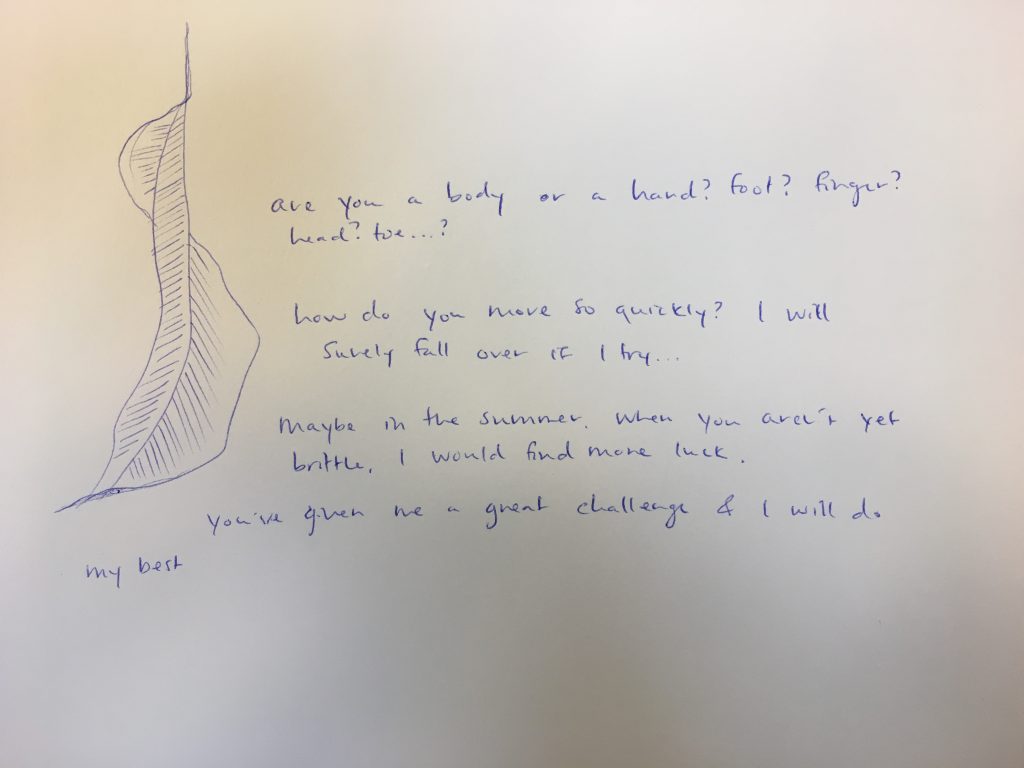 are you a body or a hand? foot? finger?
head? toe...?
how do you move so quickly? I will
surely fall over if I try...
maybe in the summer, when you aren't yet
brittle, I would find more luck.
you've given me a great challenge & I will do
my best